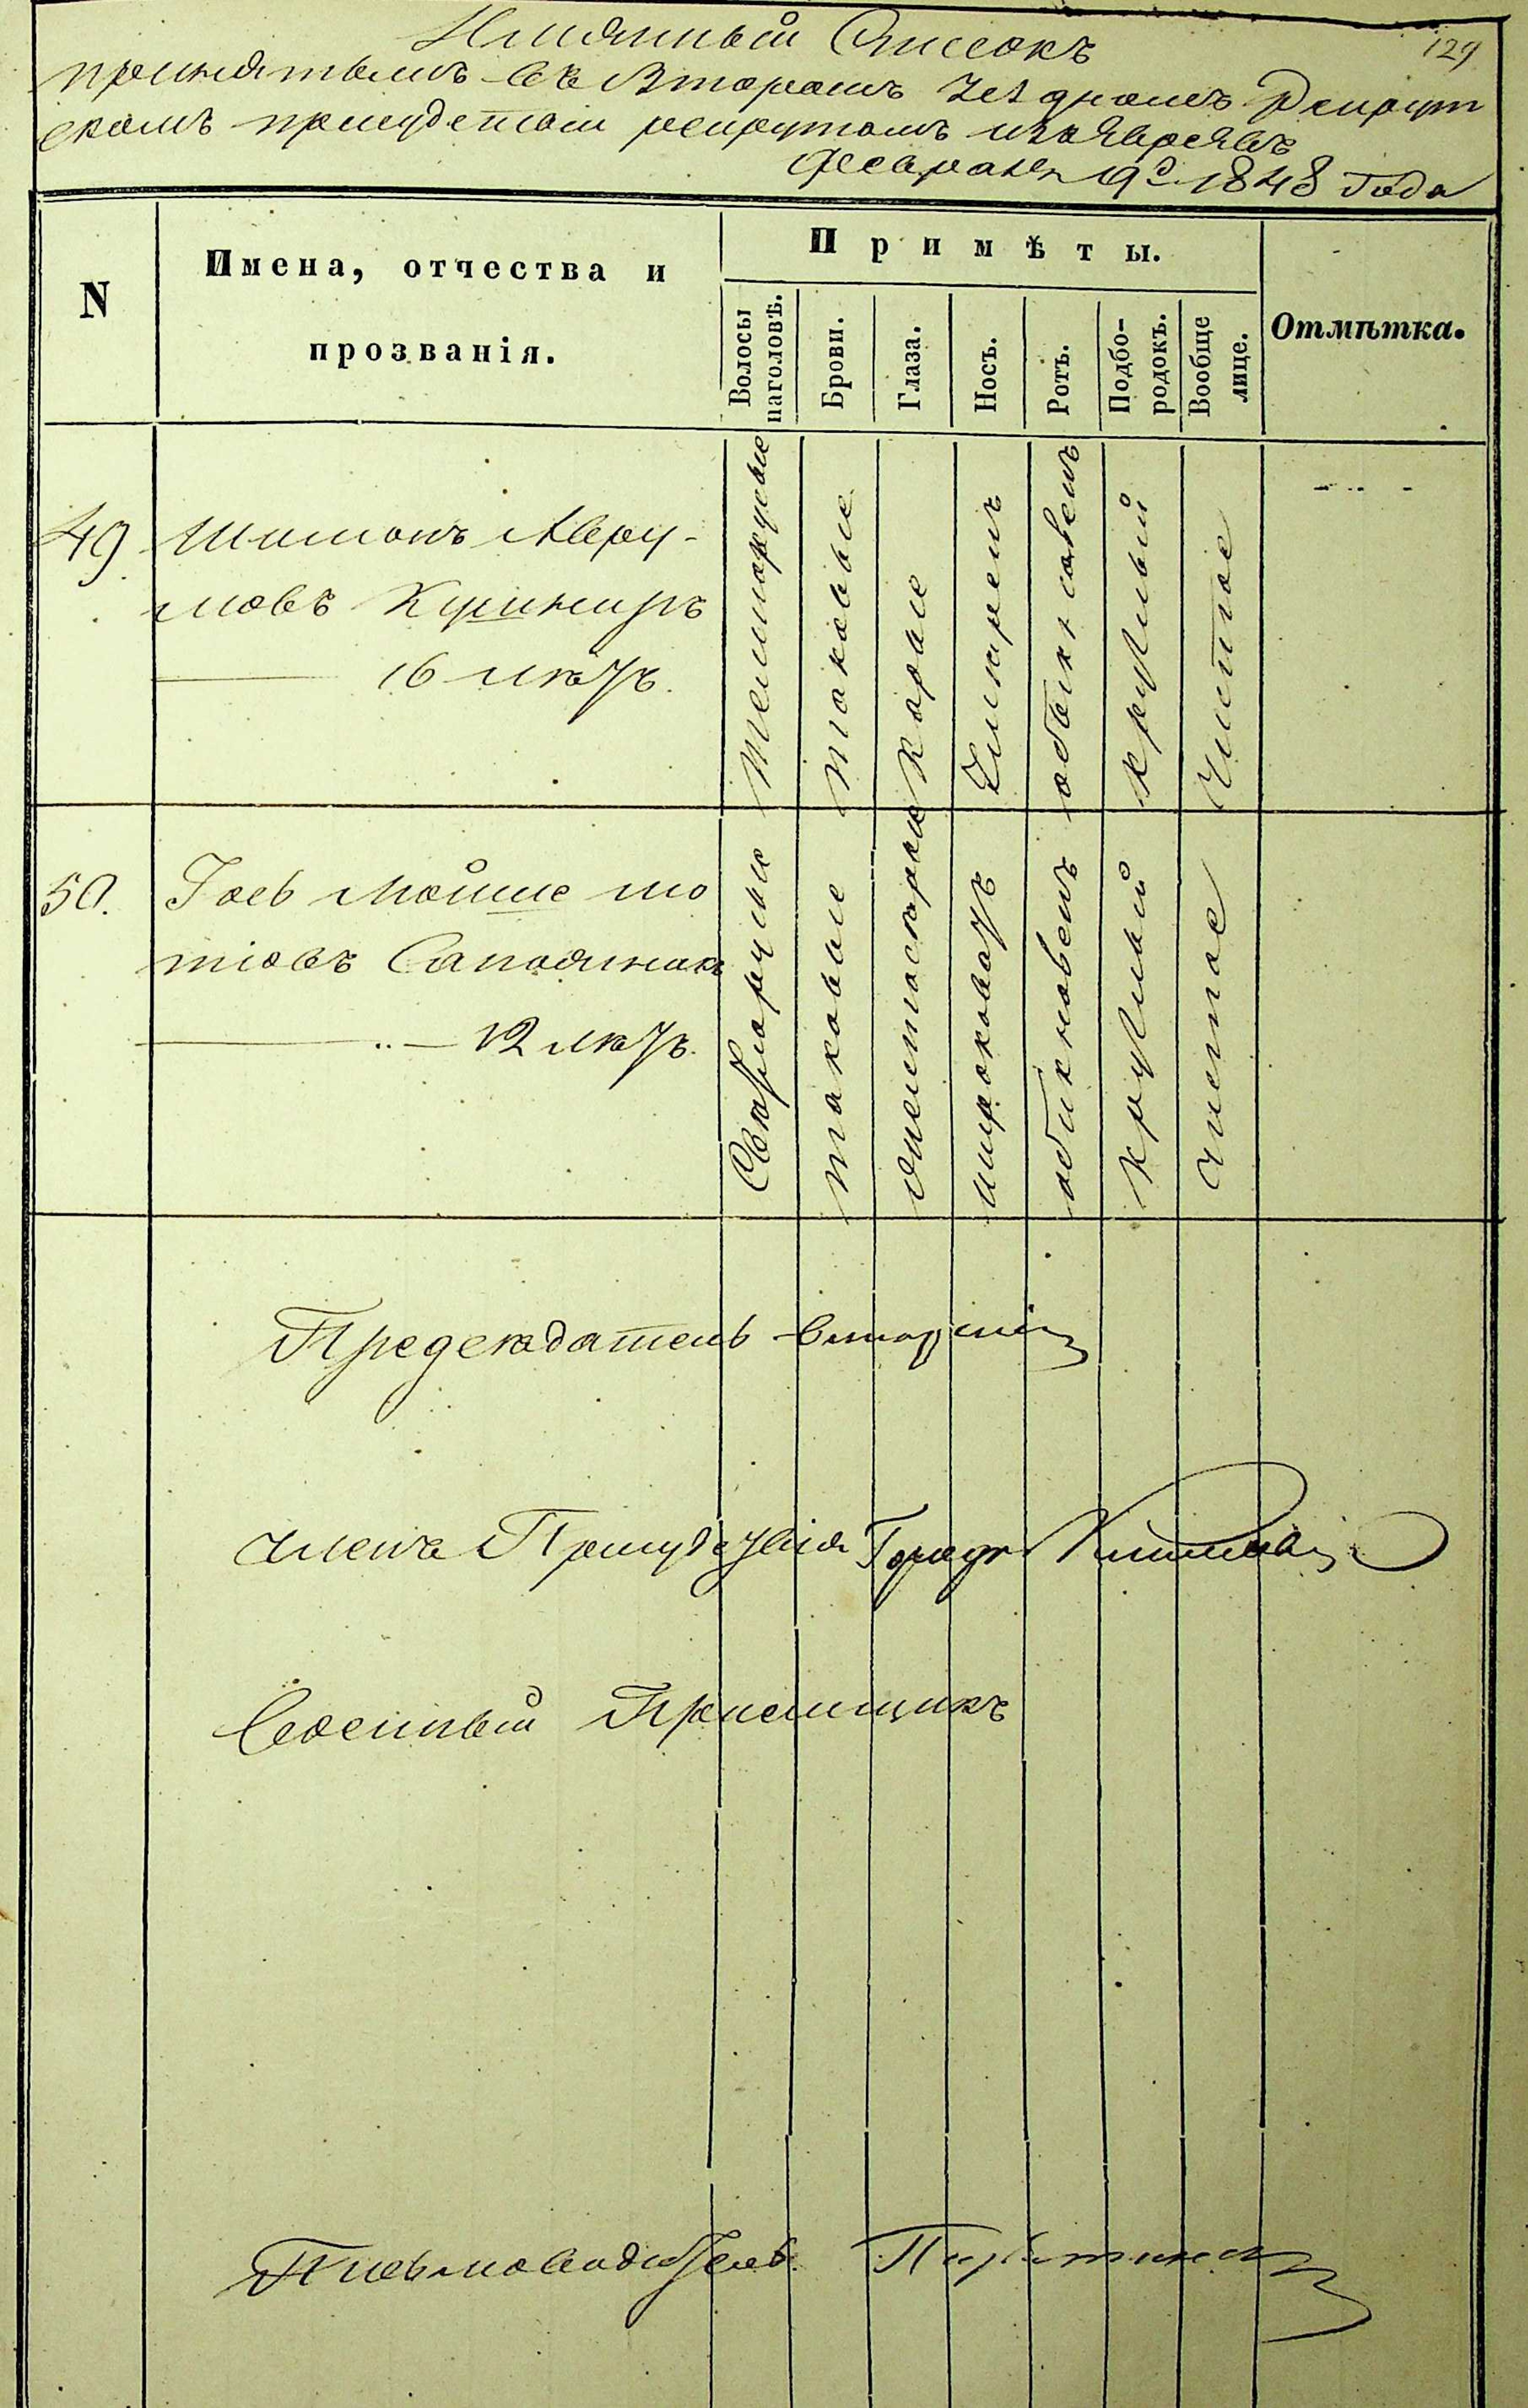 Имянный Списокъ
129
принятымъ въ Второмъ Уездномъ Рекрут
скомъ присудствіи рекрутамъ изъ Евреевъ
Февраля 19д 1848 года
N
Имена, отчества и
прозванія.
Примѣты.
Волосы
наголовѣ.
Брови.
Глаза.
Носъ.
Ротъ.
Подбо-
родокъ.
Вообще
лице.
Отмѣтка.
49
Шимонъ Авру-
мовъ Кушниръ
16 лѣтъ.
Темнорусые
таковые
Карые
Умѣрен
обыкновен
круглый
Чистое
50.
Іось Мойше мо
тіовъ Сапожникъ
12 лѣтъ.
Свѣтлорусые
таковые
широковатъ
обыкновен
круглый
чистое
Председатель
Члены Присудствія
Военный Пріемщикъ
Письмоводитель